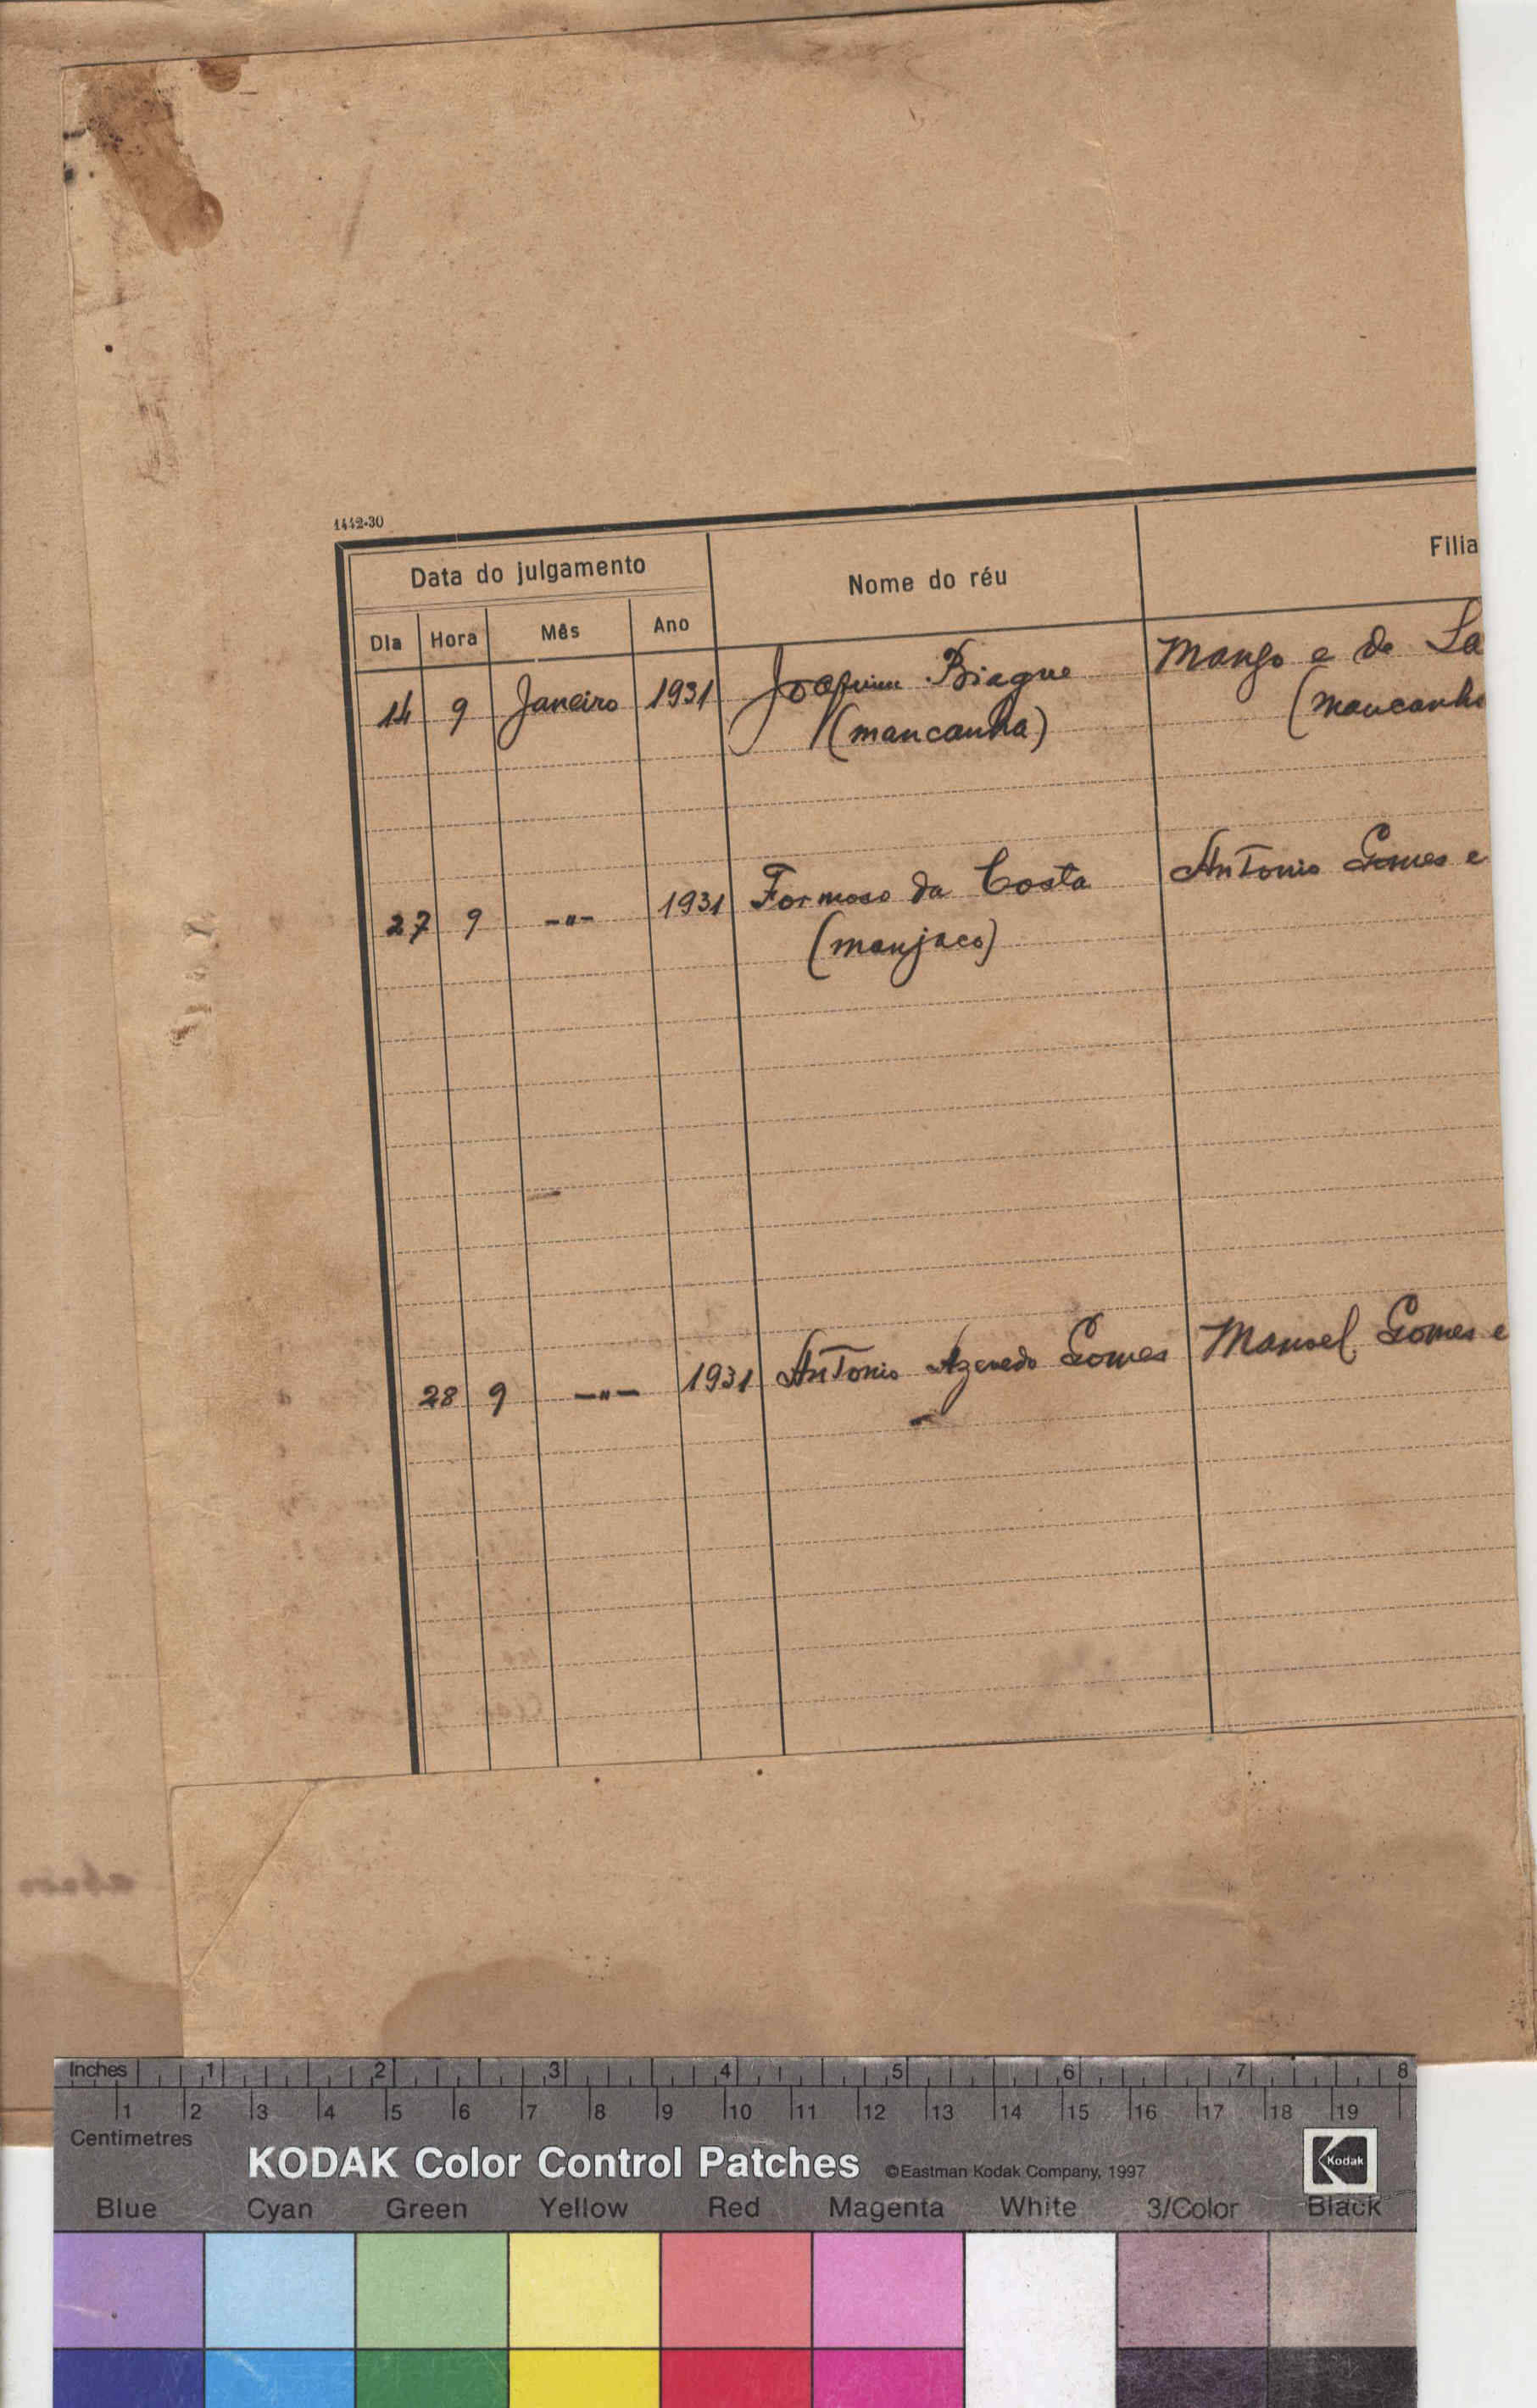 1442-30
Data do julgamento
Nome do réu
Filia
Dia Hora Mês Ano
14 9 Janeiro 1931 Joaquim Biague Mango e de Sa
(mancanha) (mancanha
27 9 -"- 1931 Formoso da Costa Antonio Gomes e
(manjaco)
28 9 -"- 1931 Antonio Azevedo Gomes Manoel Gomes e
Inches 1 2 3 4 5 6 7 8
1 2 3 4 5 6 7 8 9 10 11 12 13 14 15 16 17 18 19
Centimetres
KODAK Color Control Patches ©Eastman Kodak Company, 1997 Kodak
Blue Cyan Green Yellow Red Magenta White 3/Color Black